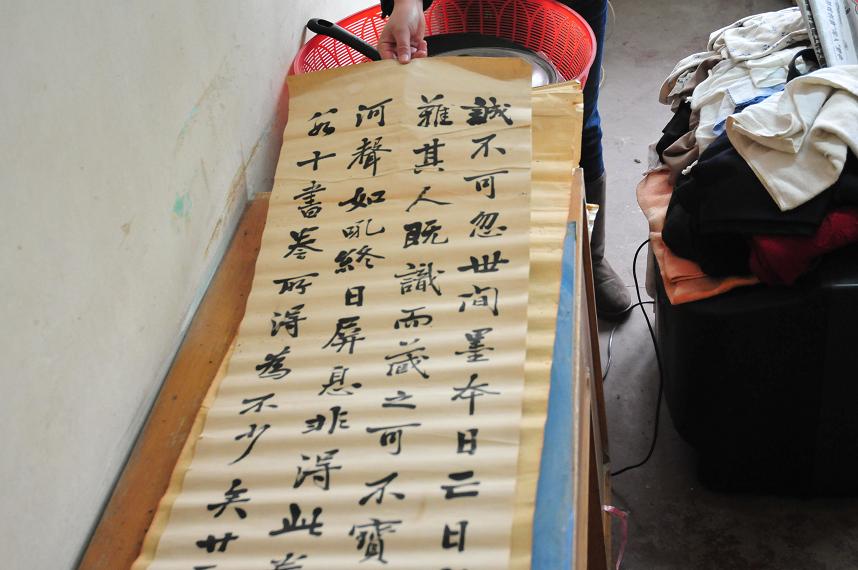 誠不可忽世间墨本日亡日
難其人既識而蔵之可不寳
河聲如吼終日屏息非得此卷
十書卷所得為不少矣廿